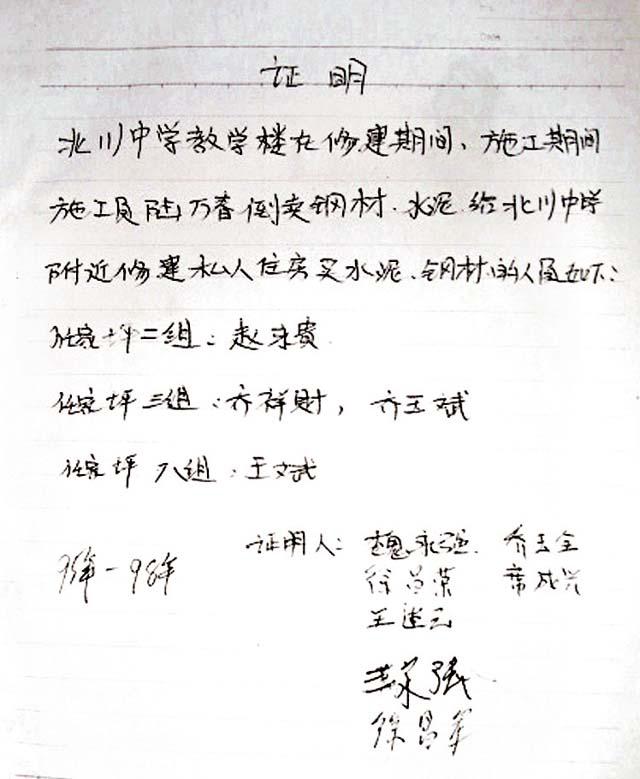 证明
北川中学教学楼在修建期间、施工期间
施工员陆万香倒卖钢材.水泥.给北川中学
附近修建私人住房买水泥、钢材的人员如下:
任家坪二组:赵求贵
任家坪三组:乔祥财,乔玉斌
任家坪八组:王文斌
证明人:魏永强 乔玉全
95年-98年
徐昌荣 席成兴
王送云
徐昌军